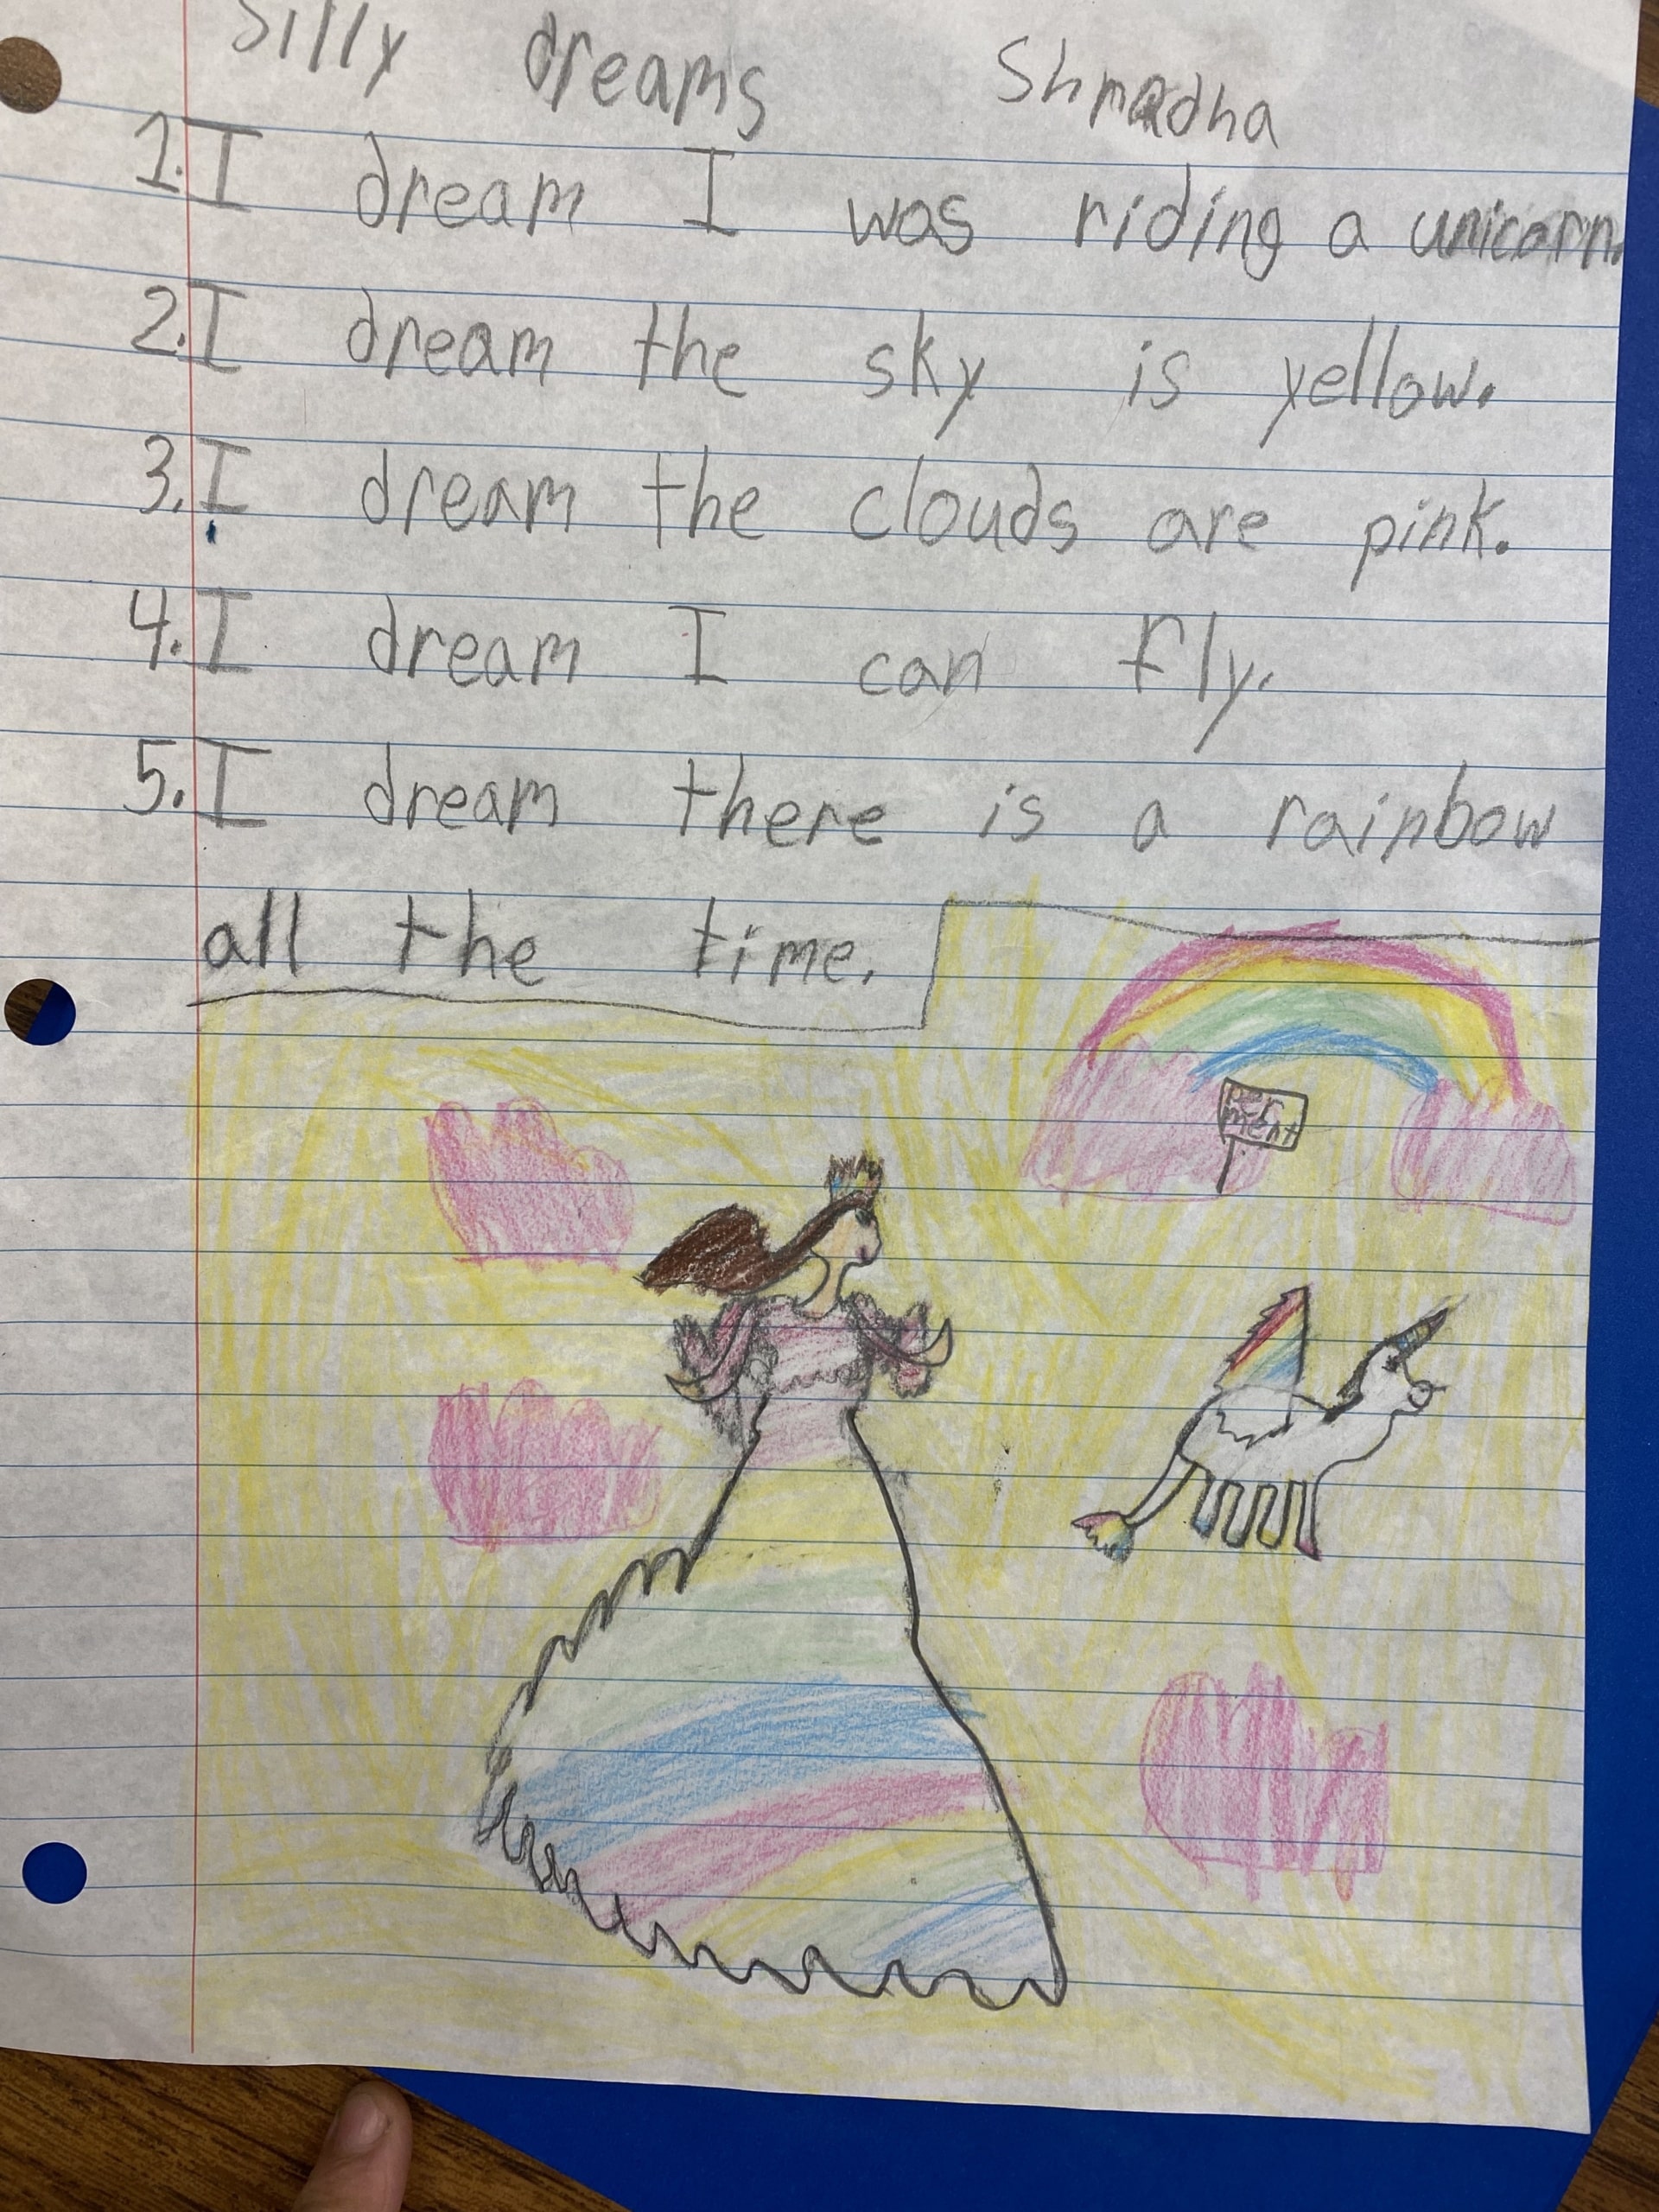 Silly dreams Shradha
1. I dream I was riding a unicorn.
2. I dream the sky is yellow.
3. I dream the clouds are pink.
4. I dream I can fly.
5. I dream there is a rainbow
all the time.
per
ment